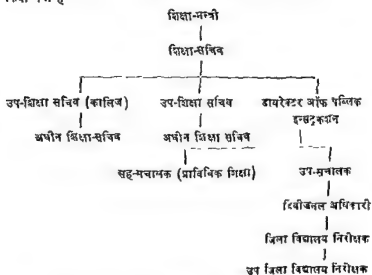 शिक्षा-मन्त्री
शिक्षा-सचिव
उप-शिक्षा सचिव (कालिज) उप-शिक्षा सचिव डायरेक्टर ऑफ पब्लिक
इन्सट्रक्शन
अधीन शिक्षा-सचिव अधीन शिक्षा सचिव
सह-सचालक (प्राविधिक शिक्षा) उप-सचालक
डिवीजनल अधिकारी
जिला विद्यालय निरीक्षक
उप जिला विद्यालय निरीक्षक